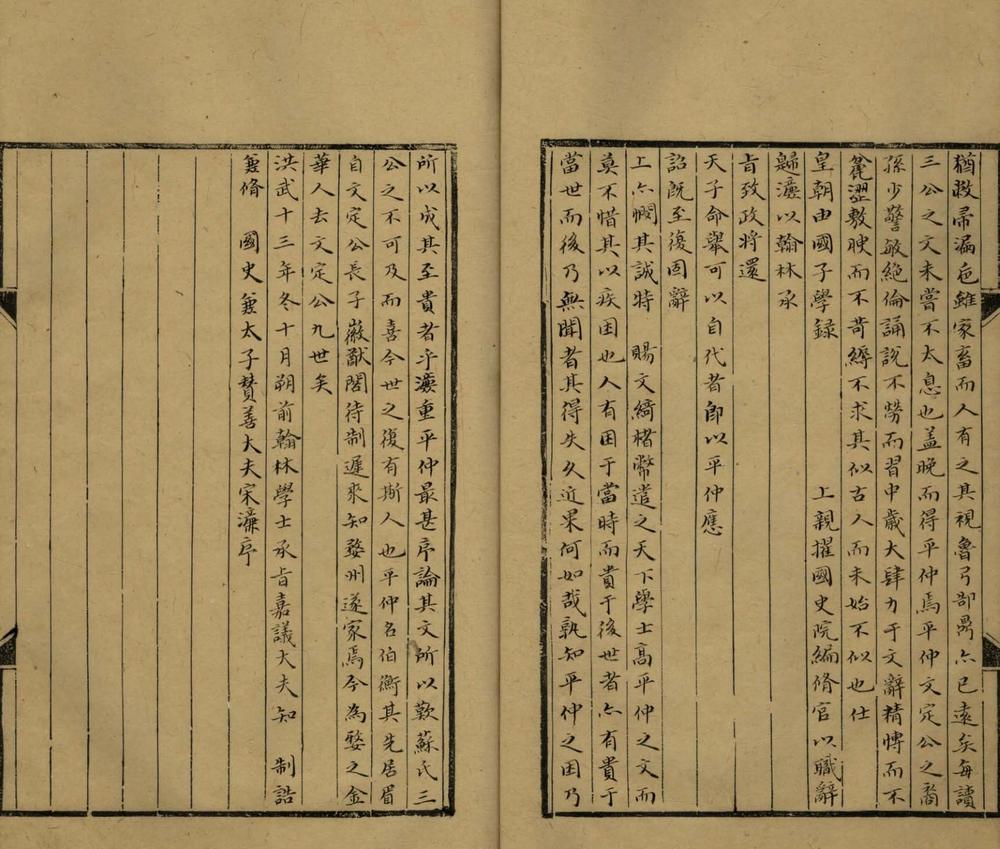 猶敝帚漏卮雖家畜而人有之其視魯弓郜鼎亦已遠矣每讀
三公之文未嘗不太息也盖晚而得平仲焉平仲文定公之裔
孫少警敏絶倫誦說不勞而習中歲大肆力于文辭精慱而不
麄澀敷腴而不苛縟不求其似古人而未始不似也仕
皇朝由國子學録　上親擢國史院編脩官以職辭
歸濂以翰林承
旨致政將還
天子命舉可以自代者卽以平仲應
詔旣至復固辭
上亦憫其誠特　賜文綺楮幣遣之天下學士高平仲之文而
莫不惜其以疾困也人有困于當時而貴于後世者亦有貴于
當世而後乃無聞者其得失久近果何如哉孰知平仲之困乃
所以成其至貴者乎濂重平仲最甚序論其文所以歎蘇氏三
公之不可及而喜今世之復有斯人也平仲名伯衡其先居眉
自文定公長子徽猷閣待制遲來知婺州遂家焉今為婺之金
華人去文定公九世矣
洪武十三年冬十月朔前翰林學士承旨嘉議大夫知　制誥
兼脩　國史兼太子賛善大夫宋濂序